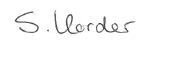 S. Herder